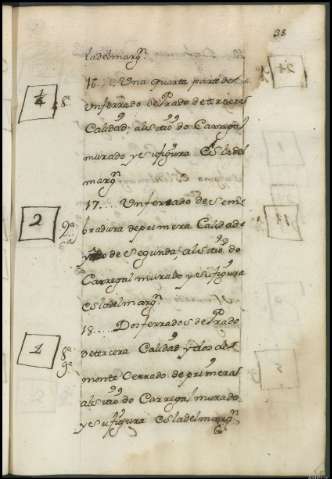 38
la del margn
16.... Una quarta parte de
Un ferrado de Prado de tercera
Calidad, al sitio do Carregal
murado y su figura es la del
margn
1/4 8ª
17.... Un ferrado de sem
bradura de primera Calidad
y otro de Segunda, al sitio do
Carregal murado y su figura
es la del margn
2
18.... Dos ferrados de Prado
de tercera Calidad y dos de
monte Cerrado de primera
al sitio do Carregal, murado
y su figura es la del margn
8ª
9ª